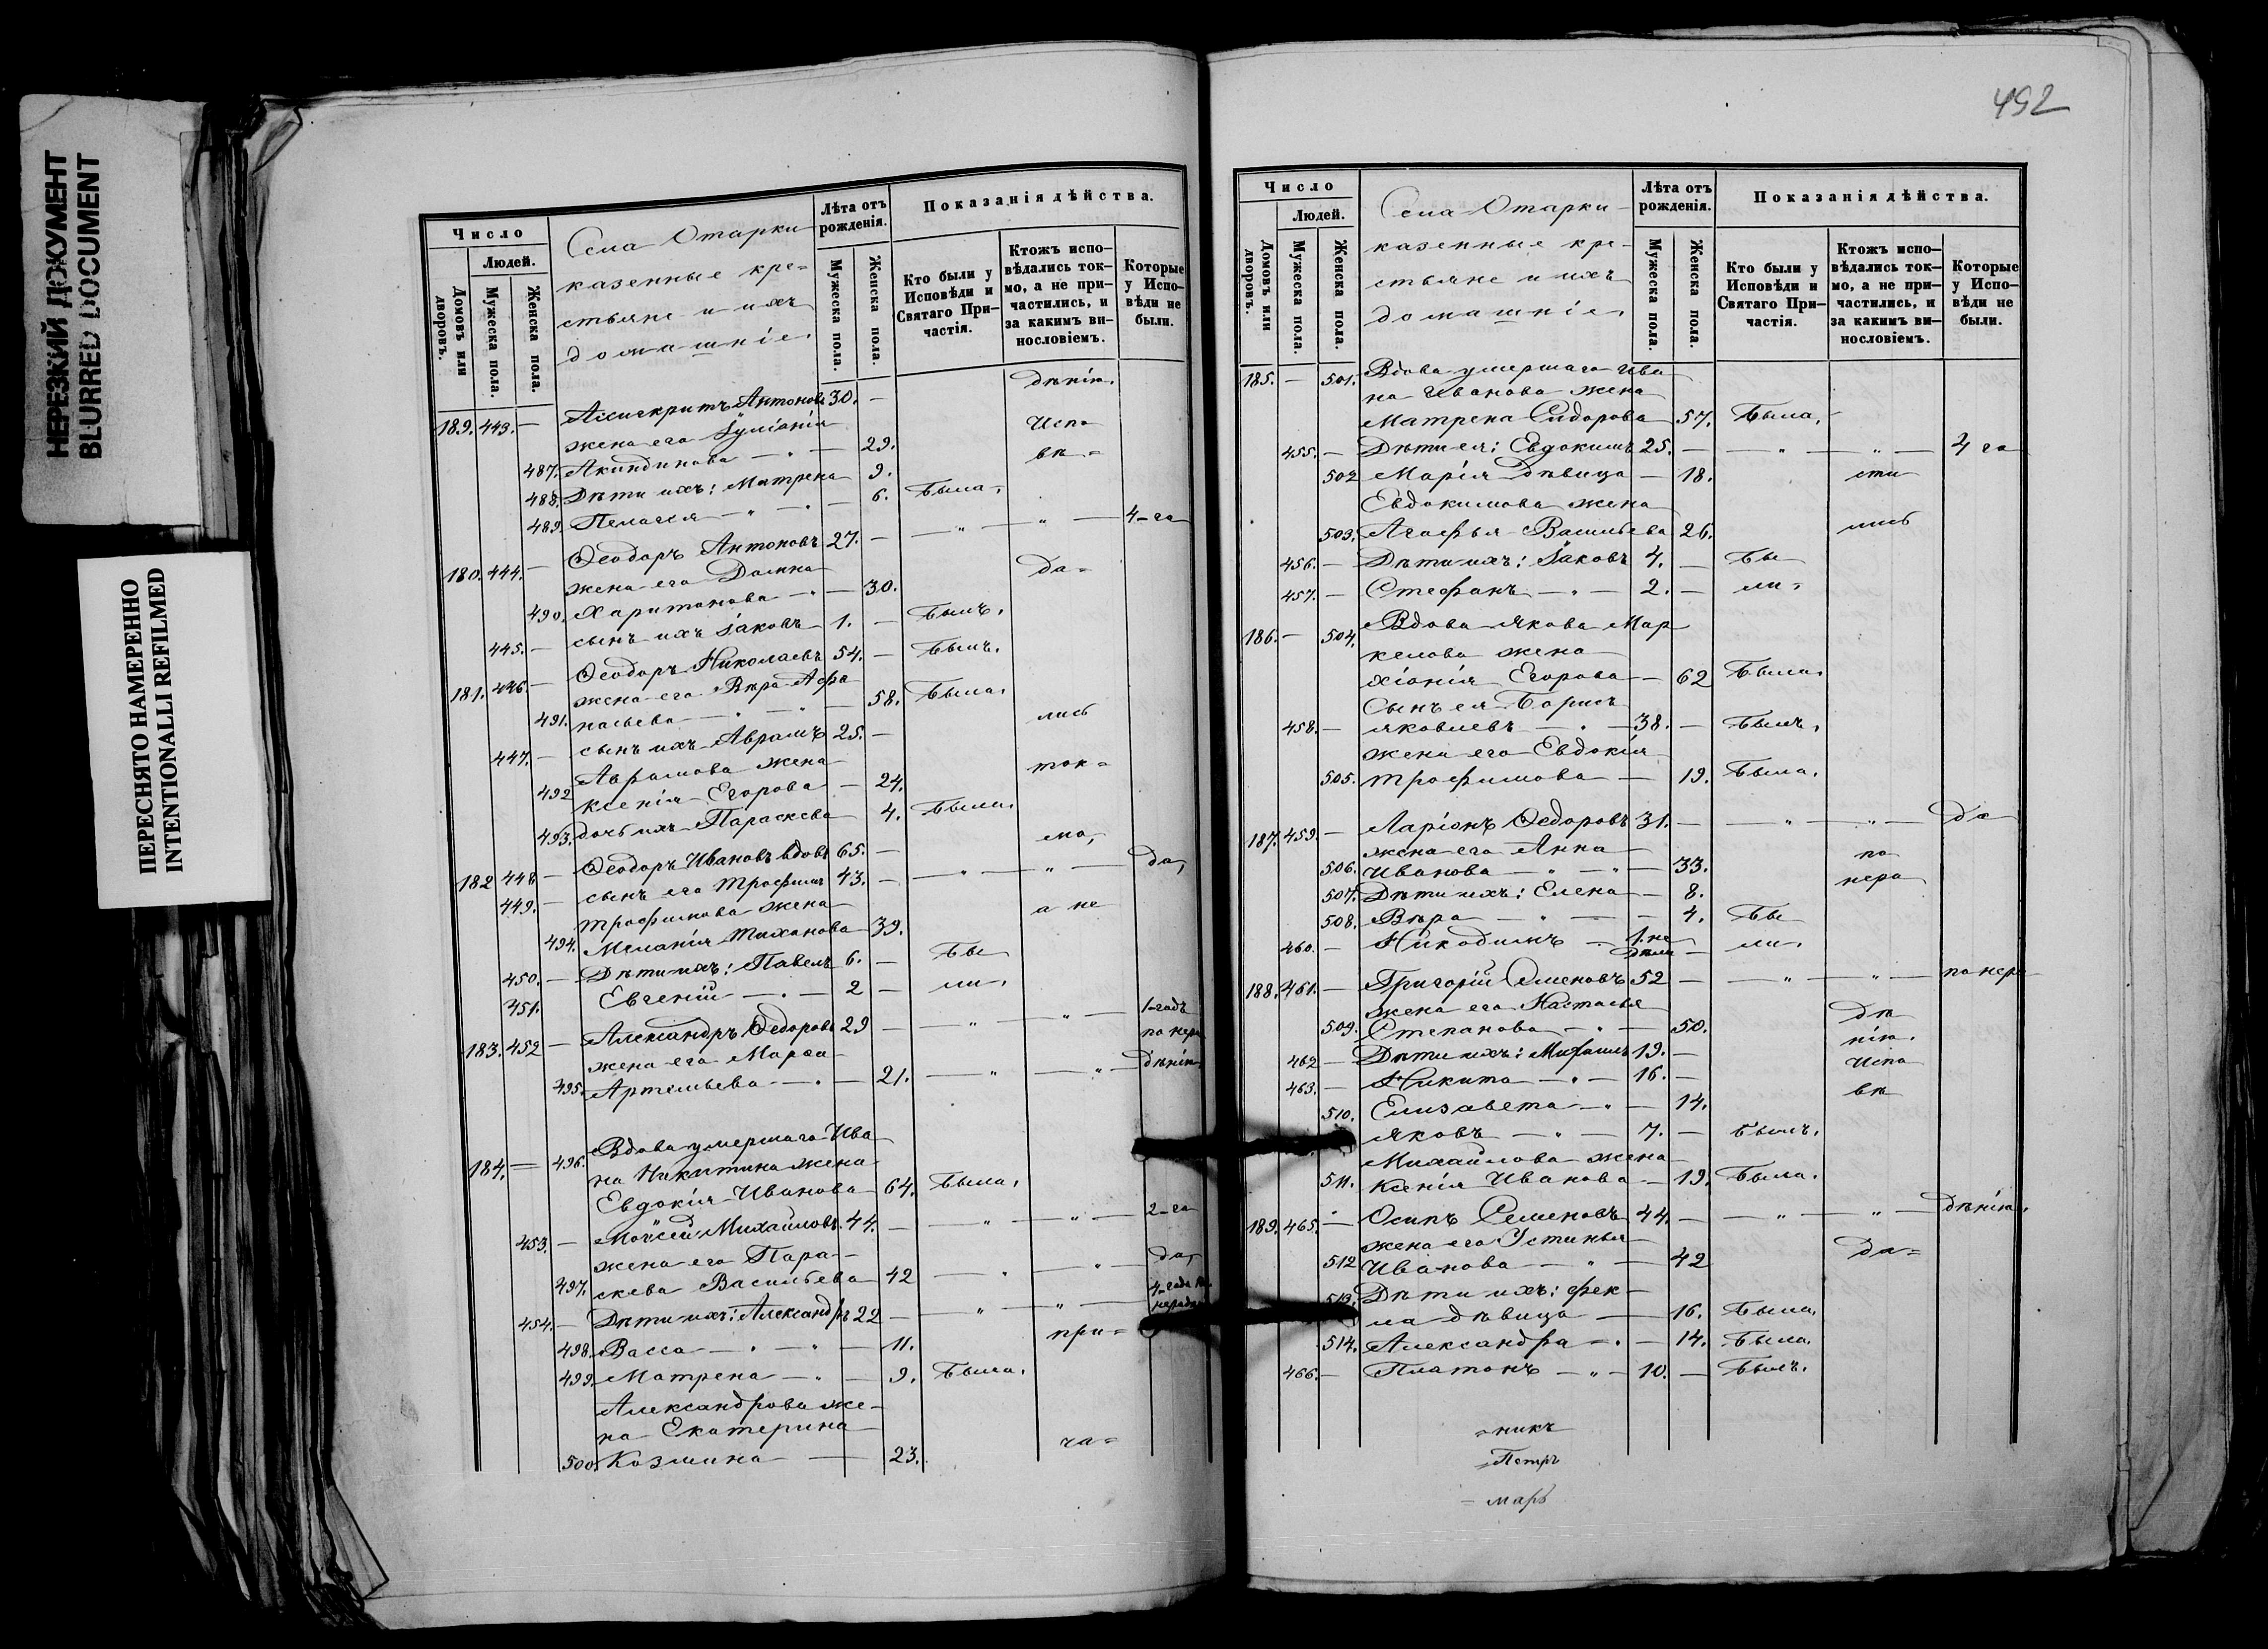 НЕРЕЗКИЙ ДОКУМЕНТ
BLURRED DOCUMENT
ПЕРЕСНЯТО НАМЕРЕННО
INTENTIONALLI REFILMED
Число
Людей.
Домовъ или дворовъ.
Мужеска пола.
Женска пола.
Села Отарки
казенные кре=
стьяне и ихъ
домашніе.
Лѣта отъ рожденія.
Мужеска пола.
Женска пола.
Показанія дѣйства.
Кто были у Исповѣди и Святаго Причастія.
Ктожъ исповѣдались токмо, а не причастились, и за какимъ винословіемъ.
Которые у Исповѣди не были.
дѣнію.
189. 443. — Антоновъ 30. —
Испо
жена его Іуліанія
487. Акиндинова — 29.
вѣ=
488. Дѣти ихъ: Матрена 9.
489. Пелагея — 6. Была.
180. 444. — Ѳеодоръ Антоновъ 27. — — „ — „ — 4-го
жена его Домна
да=
490. Харитонова — 30.
445. — сынъ ихъ Іаковъ 1. — Былъ.
181. 446. — Ѳеодоръ Николаевъ 54. — Былъ.
жена его Вѣра Афа
491. насьева — 58. Была.
лись
447. — сынъ ихъ Аврамъ 25. —
Аврамова жена
ток=
492 Ксенія Егорова — 24.
493. дочь ихъ Параскева 4. Была.
мо,
182 448 — Ѳеодоръ Ивановъ вдовъ 65. —
449. — сынъ его Трофимъ 43. — — „ — „ — да,
Трофимова жена
а не
494. Меланія Тихонова 39.
450. — Дѣти ихъ: Павелъ 6. — Бы
451. Евгеній — 2 — ли.
1-годъ
183. 452 — Александръ Ѳедоровъ 29 — „ — „ — по нера
жена его Марѳа
дѣнію
495. Артемьева — 21. — „ — „
184. — 496. Вдова умершаго Ива
на Никитина жена
Евдокія Иванова 64. Была.
453. — Моѵсей Михайловъ 44. — — „ — „ — 2-го
жена его Пара-
да,
497. скева Васильева 42 — „ — „
454. — Дѣти ихъ: Александръ 22 — — „ — „ —
498. Васса — „ — 11.
при=
499. Матрена — „ — 9. Была.
Александрова же-
на Екатерина
500. Козмина — 23.
ча=
492
Число
Людей.
Домовъ или дворовъ.
Мужеска пола.
Женска пола.
Села Отарки
казенные кре-
стьяне и ихъ
домашніе.
Лѣта отъ рожденія.
Мужеска пола.
Женска пола.
Показанія дѣйства.
Кто были у Исповѣди и Святаго Причастія.
Ктожъ исповѣдались токмо, а не причастились, и за какимъ винословіемъ.
Которые у Исповѣди не были.
185. — 501. Вдова умершаго Ива
на Иванова жена
Матрена Сидорова 57. Была.
455. — Дѣти ея: Евдокимъ 25. — — „ — „ — 4 го
502 Марія дѣвица — 18.
сти
Евдокимова жена
503. Агафья Васильева 26.
лись
456. — Дѣти ихъ: Іаковъ 4. — Бы
457. — Стефанъ — „ — 2. — ли.
186. — 504. Вдова Якова Мар
келова жена
Хіонія Егорова — 62 Была.
Сынъ ея Борисъ
458. — Яковлевъ — 38. — Былъ.
жена его Евдокія
505. Трофимова — 19. Была.
187. 459. — Ларіонъ Ѳедоровъ 31. — — „ — „ — да
жена его Анна
по
506. Иванова — „ — „ — 33.
507. Дѣти ихъ: Елена — 8.
нера
508. Вѣра — „ — 4. Бы
460. — Никодимъ — 1. не
дѣли — ли.
188. 461. — Григорій Семеновъ 52 — — „ — „ — по нера
жена его Настасья
дѣ
509. Степанова — „ — 50.
нію.
462 — Дѣти ихъ: 19. —
Испо
463. — Никита — „ — 16. —
вѣ
510. Елизавета — „ — 14.
Яковъ — „ — 7. — Былъ.
Михайлова жена
511. Ксенія Иванова — 19. Была.
189. 465. — Осипъ Семеновъ 44. — — „ — „ — дѣнію.
жена его Устинья
да=
512 Иванова — „ — 42
513. Дѣти ихъ: Фек-
ла дѣвица — 16. Была.
514. Александра — „ — 14. Была.
466. — Платонъ — „ — 10. — Былъ.
=никъ
=Петръ
=марь